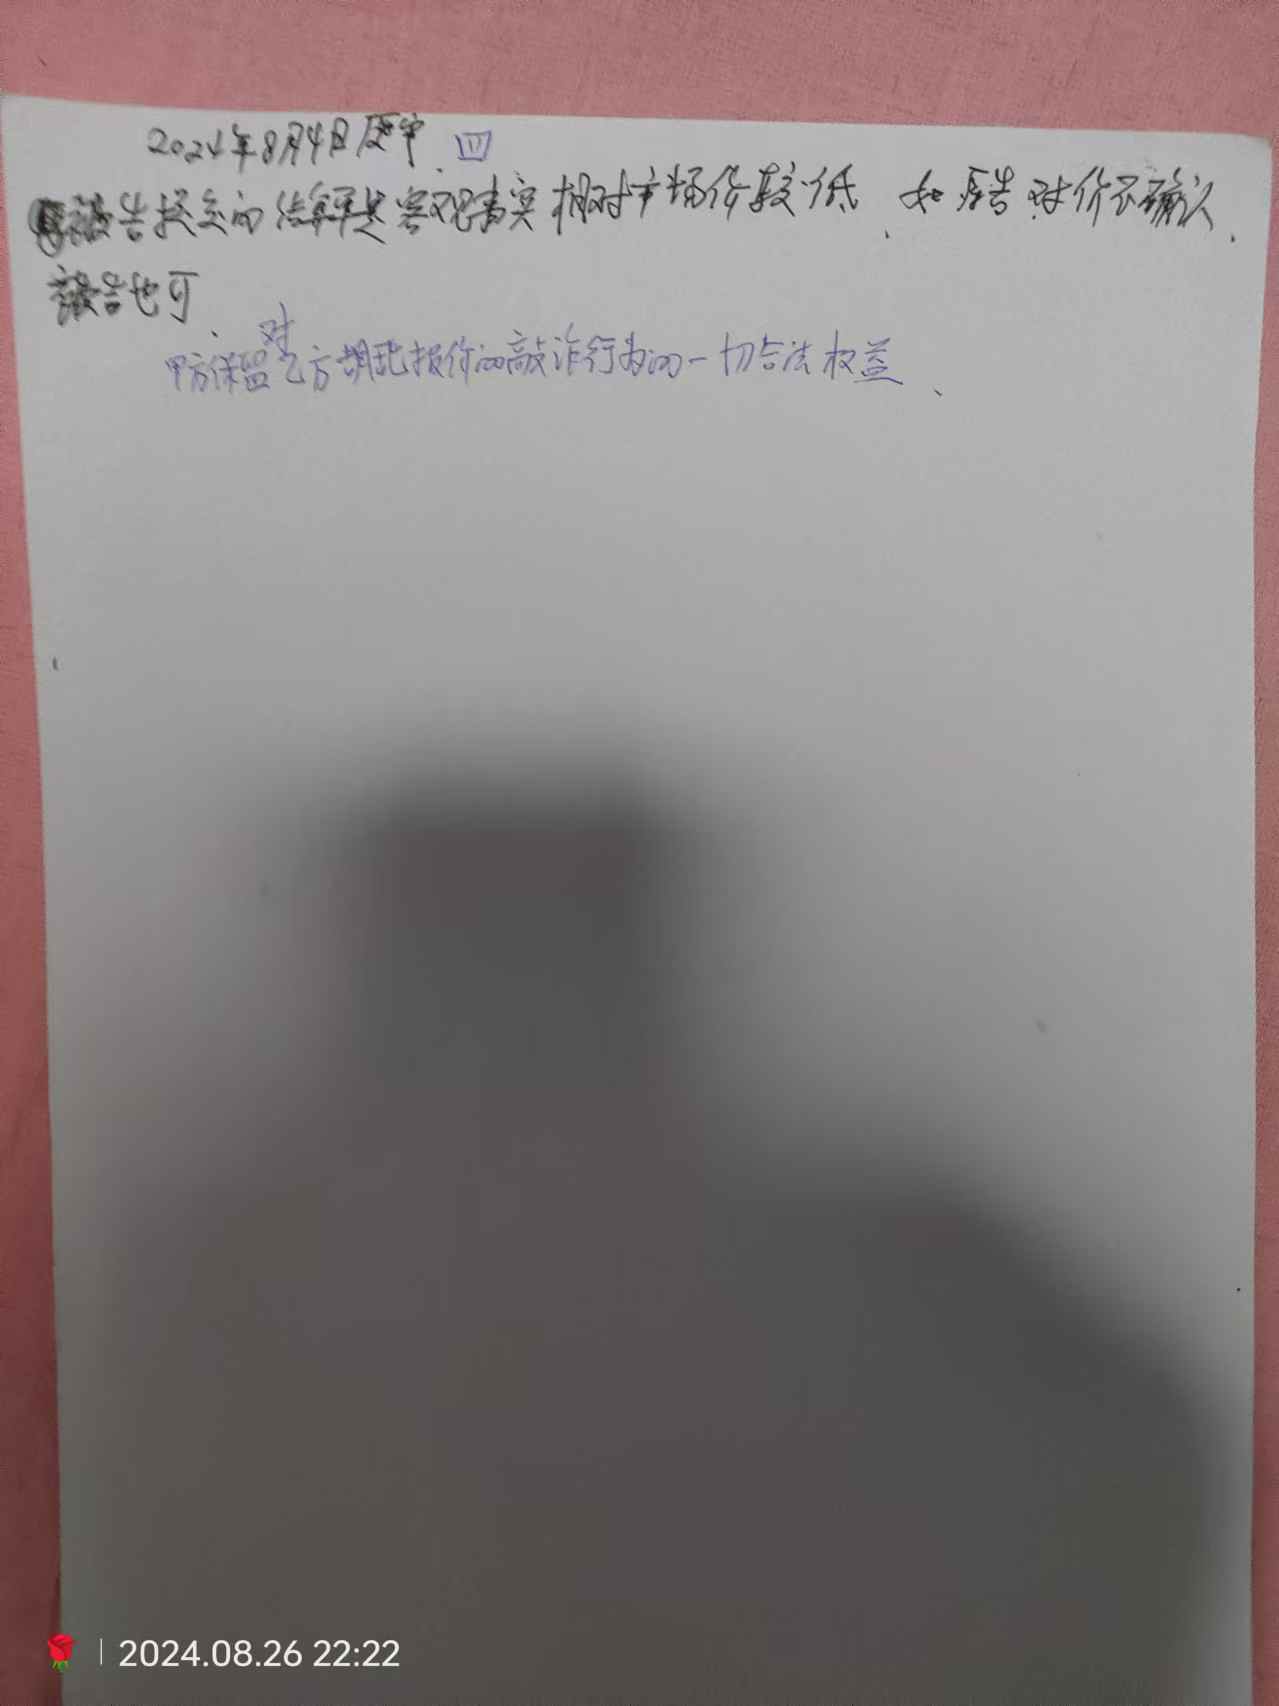 2024年8月4日庭审 四
被告提交的结算是客观事实相对市场价较低、如原告对价不确认、
被告也可、
甲方保留对乙方胡乱报价的敲诈行为的一切合法权益、
2024.08.26 22:22